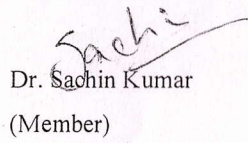 Sachi
Dr. Sachin Kumar
(Member)